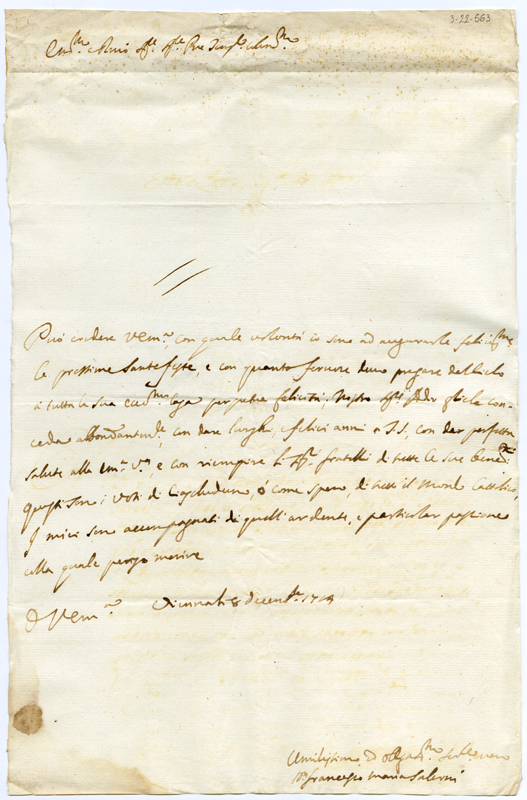 3-22-563
Em.mo e Rmo Sig.re Sig.re Pne
Può credere V Em.a con quale volontà io sono ad augurarle felicissime
le prossime Sante feste, e con quanto fervore devo pregare del Cielo
à tutta la sua ecc.ma Casa perpetue felicità, Nostro Sig.re Iddio gliela con-
ceda abbondantem.te, con dare lunghi, e felici anni a S.S., con dar perfetta
salute alla Em.a V.ra, e con riempire li Sig.ri fratelli di tutte le sue bened.ni
questi sono i voti di Ciascheduno, ò come spero, di tutto il Mondo Cattolico
I miei sono accompagnati da quell'ardente, e particolar passione
colla quale vengo morire
D V Em.a 8 Decemb.re 1719
Umilissimo Di obligatis.mo Ser.e vero
Francesco Maria Salerni